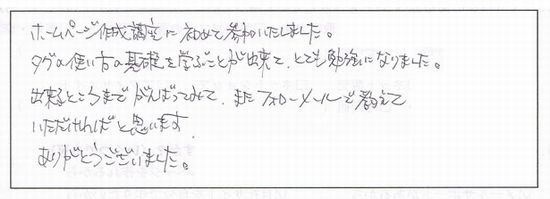 ホームページ作成講座に初めて参加いたしました。
タグの使い方の基礎を学ぶことが出来て、とても勉強になりました。
出来るところまでがんばってみて、またフォローメールで教えて
いただければと思います
ありがとうございました。